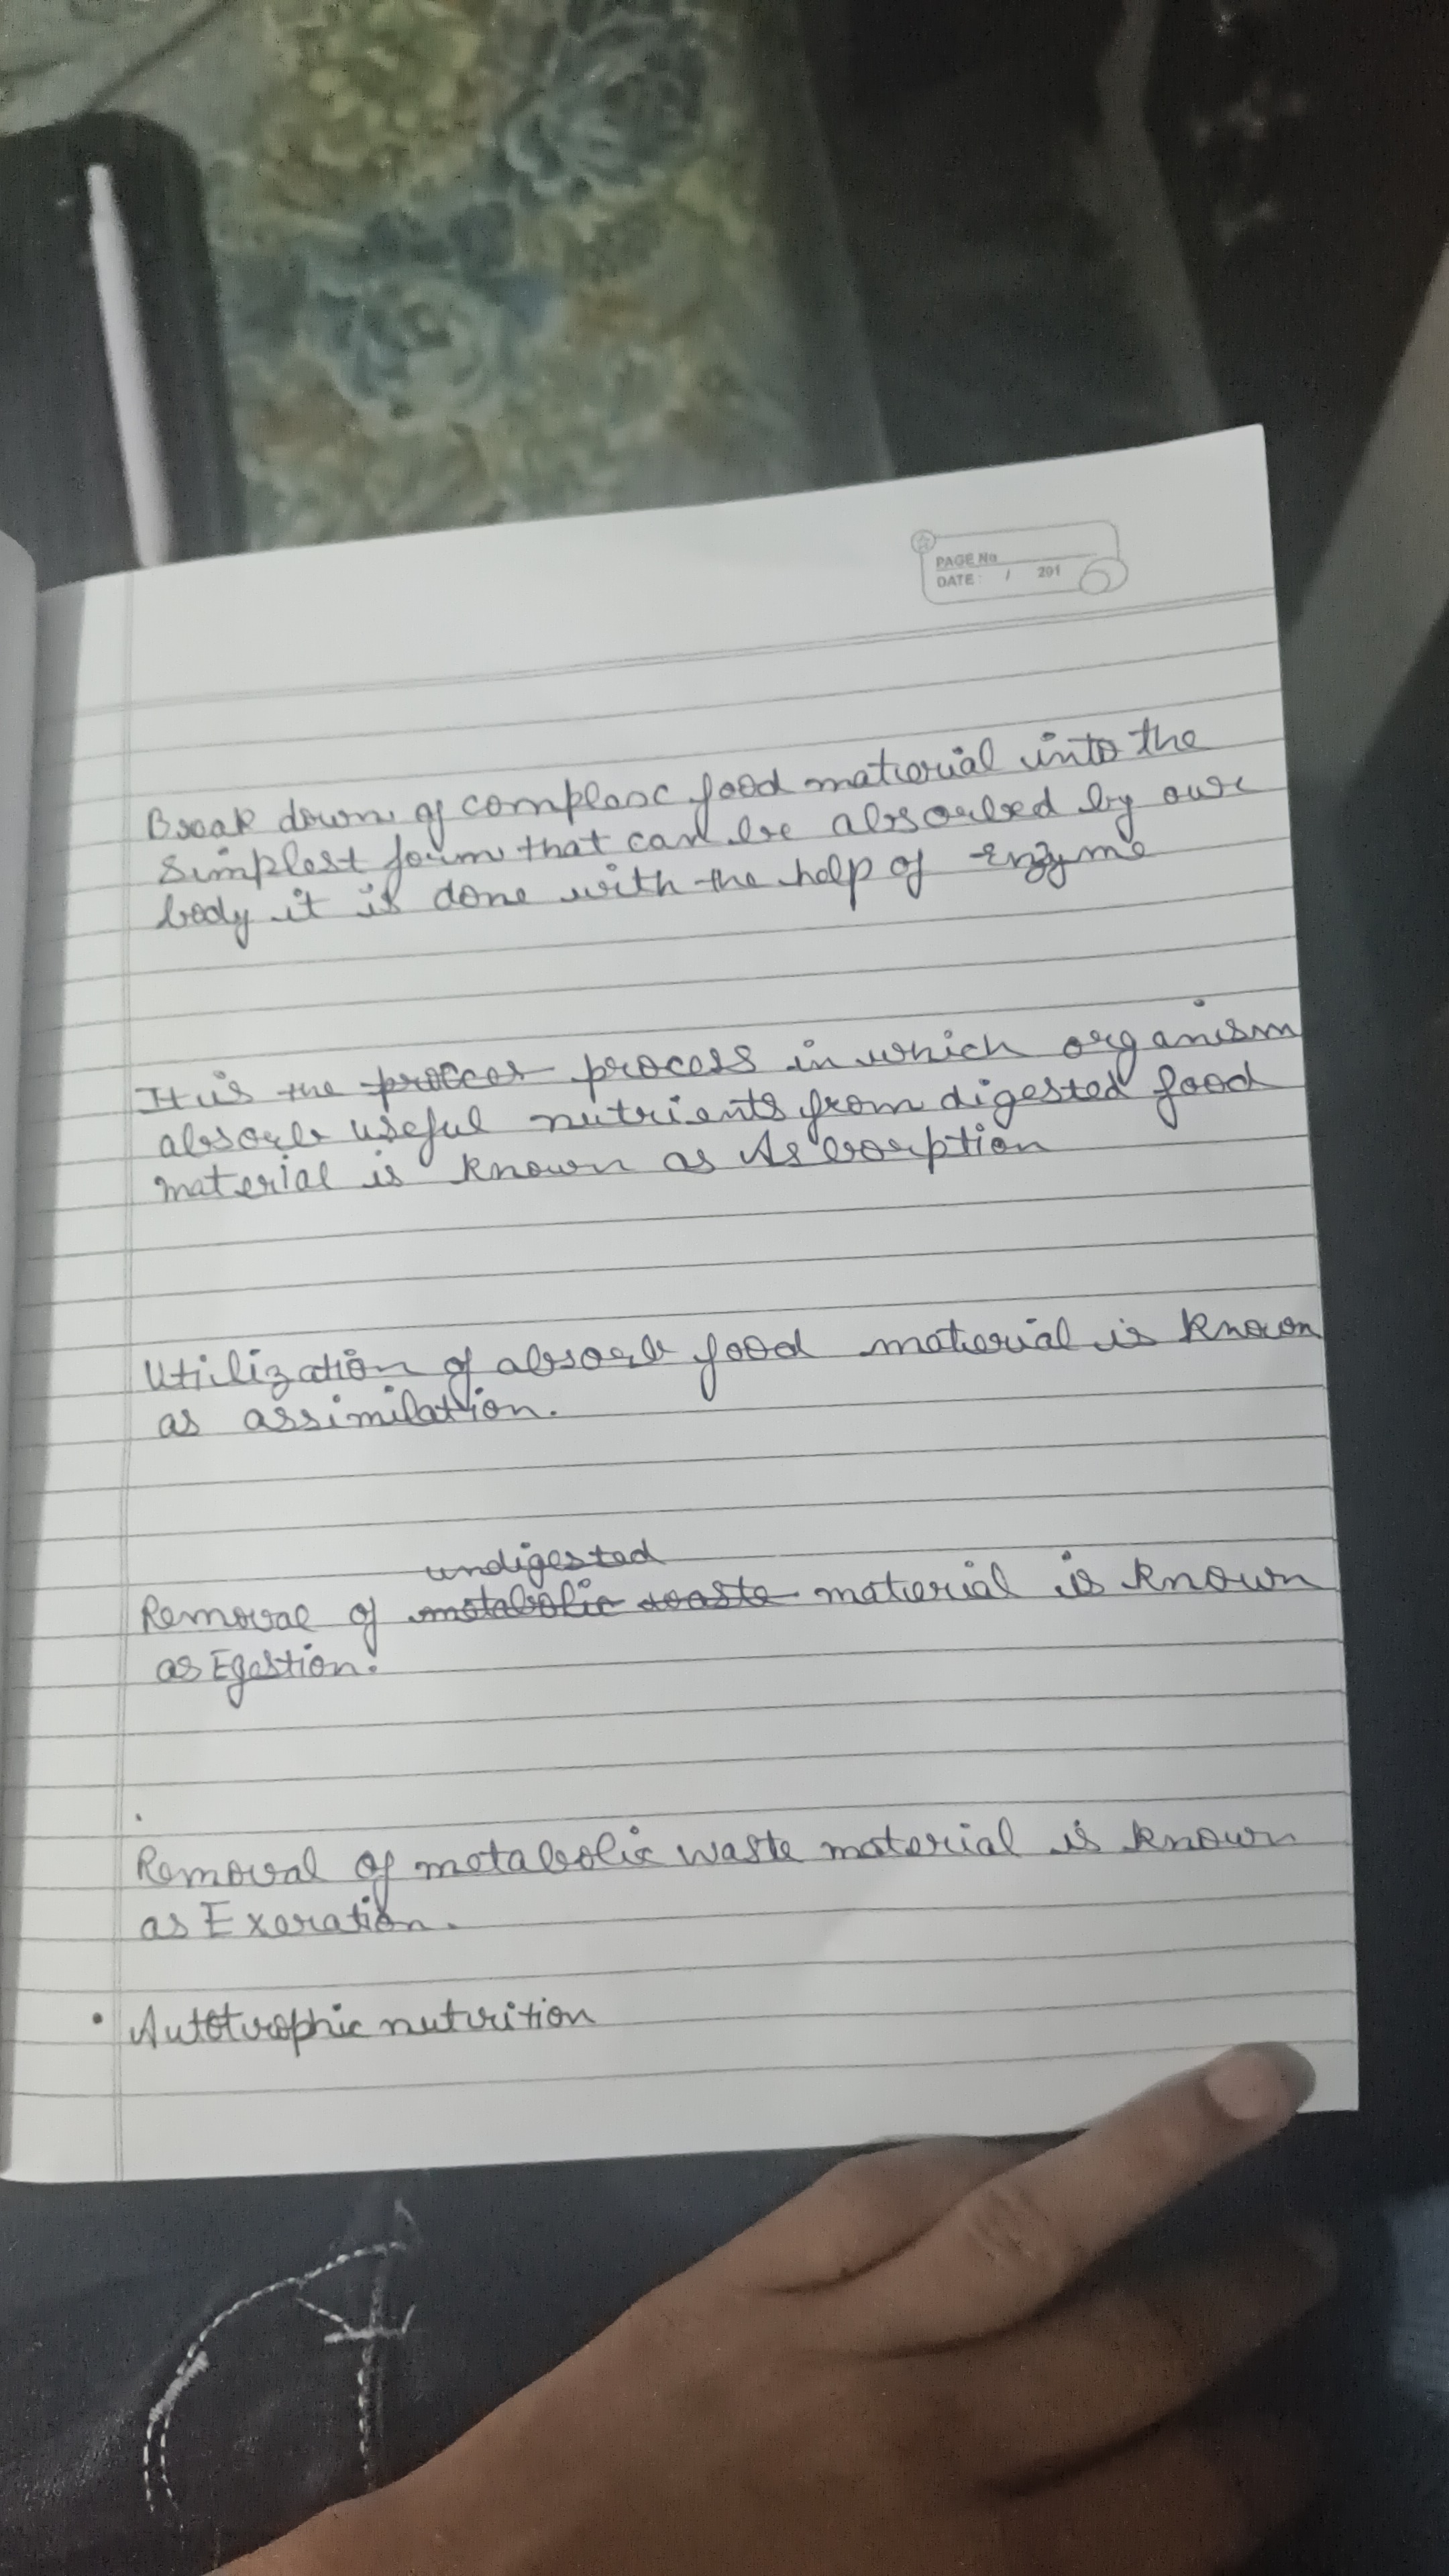 PAGE No
DATE: / 201
Break down of complex food material into the
simplest form that can be absorbed by our
body it is done with the help of enzyme
It is the procces process in which organism
absorb useful nutrients from digested food
material is known as Asborption
Utilization of absorb food material is known
as assimilation.
undigested
Removal of metabolic waste material is known
as Egestion.
Removal of metabolic waste material is known
as Exeration.
• Autotrophic nutrition